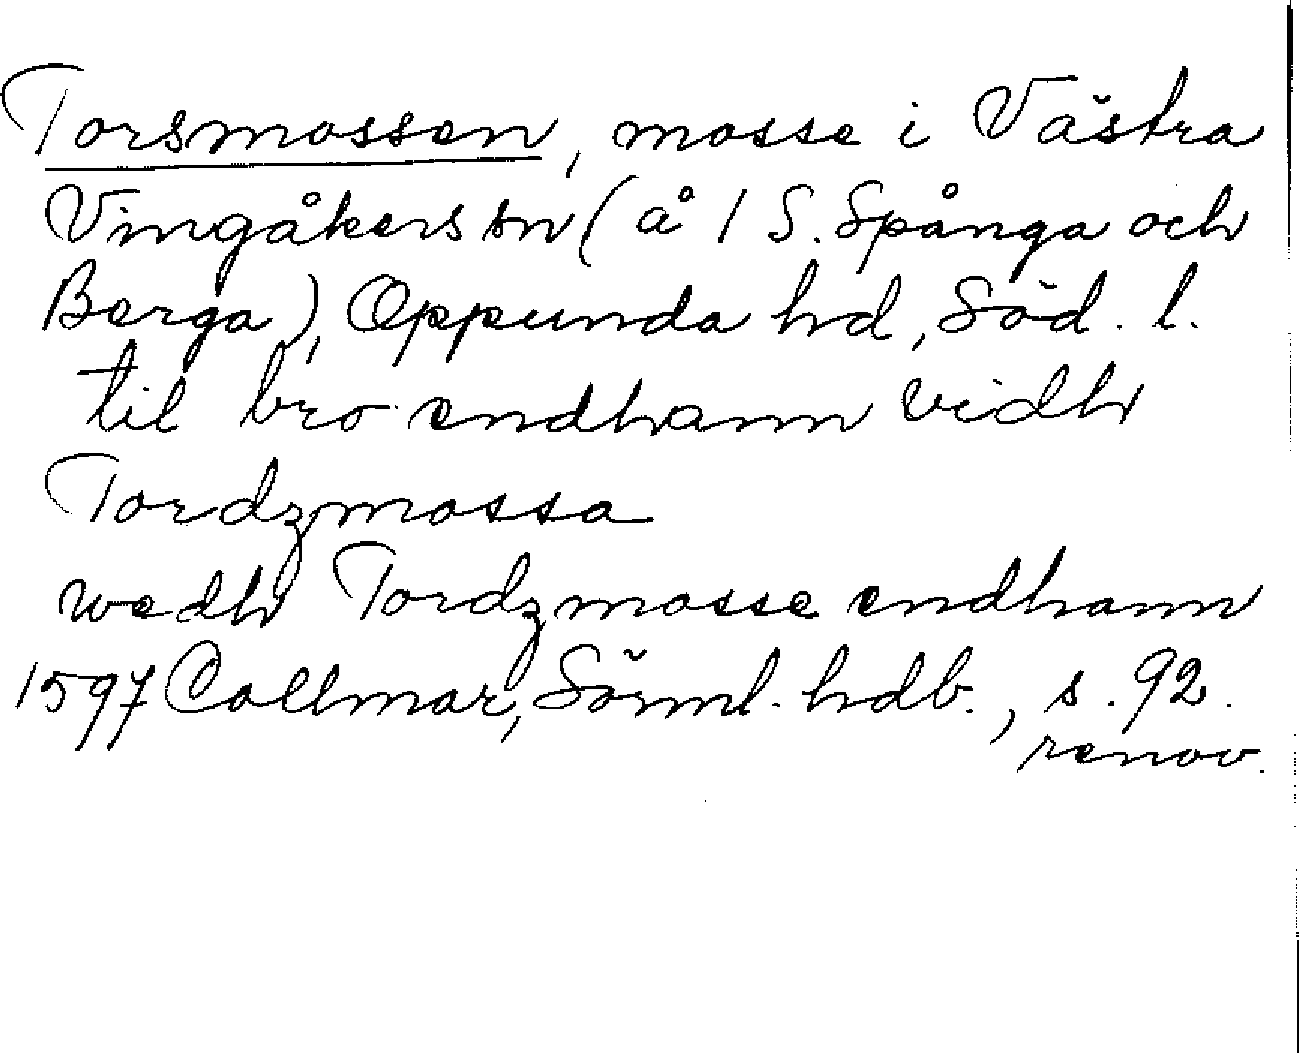 Torsmossen, mosse i Västra
Vingåkers sn (å / S. Spånga och
Berga), Oppunda hd, Söd. l.
til bro endhann vidh
Tordzmossa
wedh Tordzmosse endhann
1597 Collmar, Sörml. hdb., s. 92.
renov.